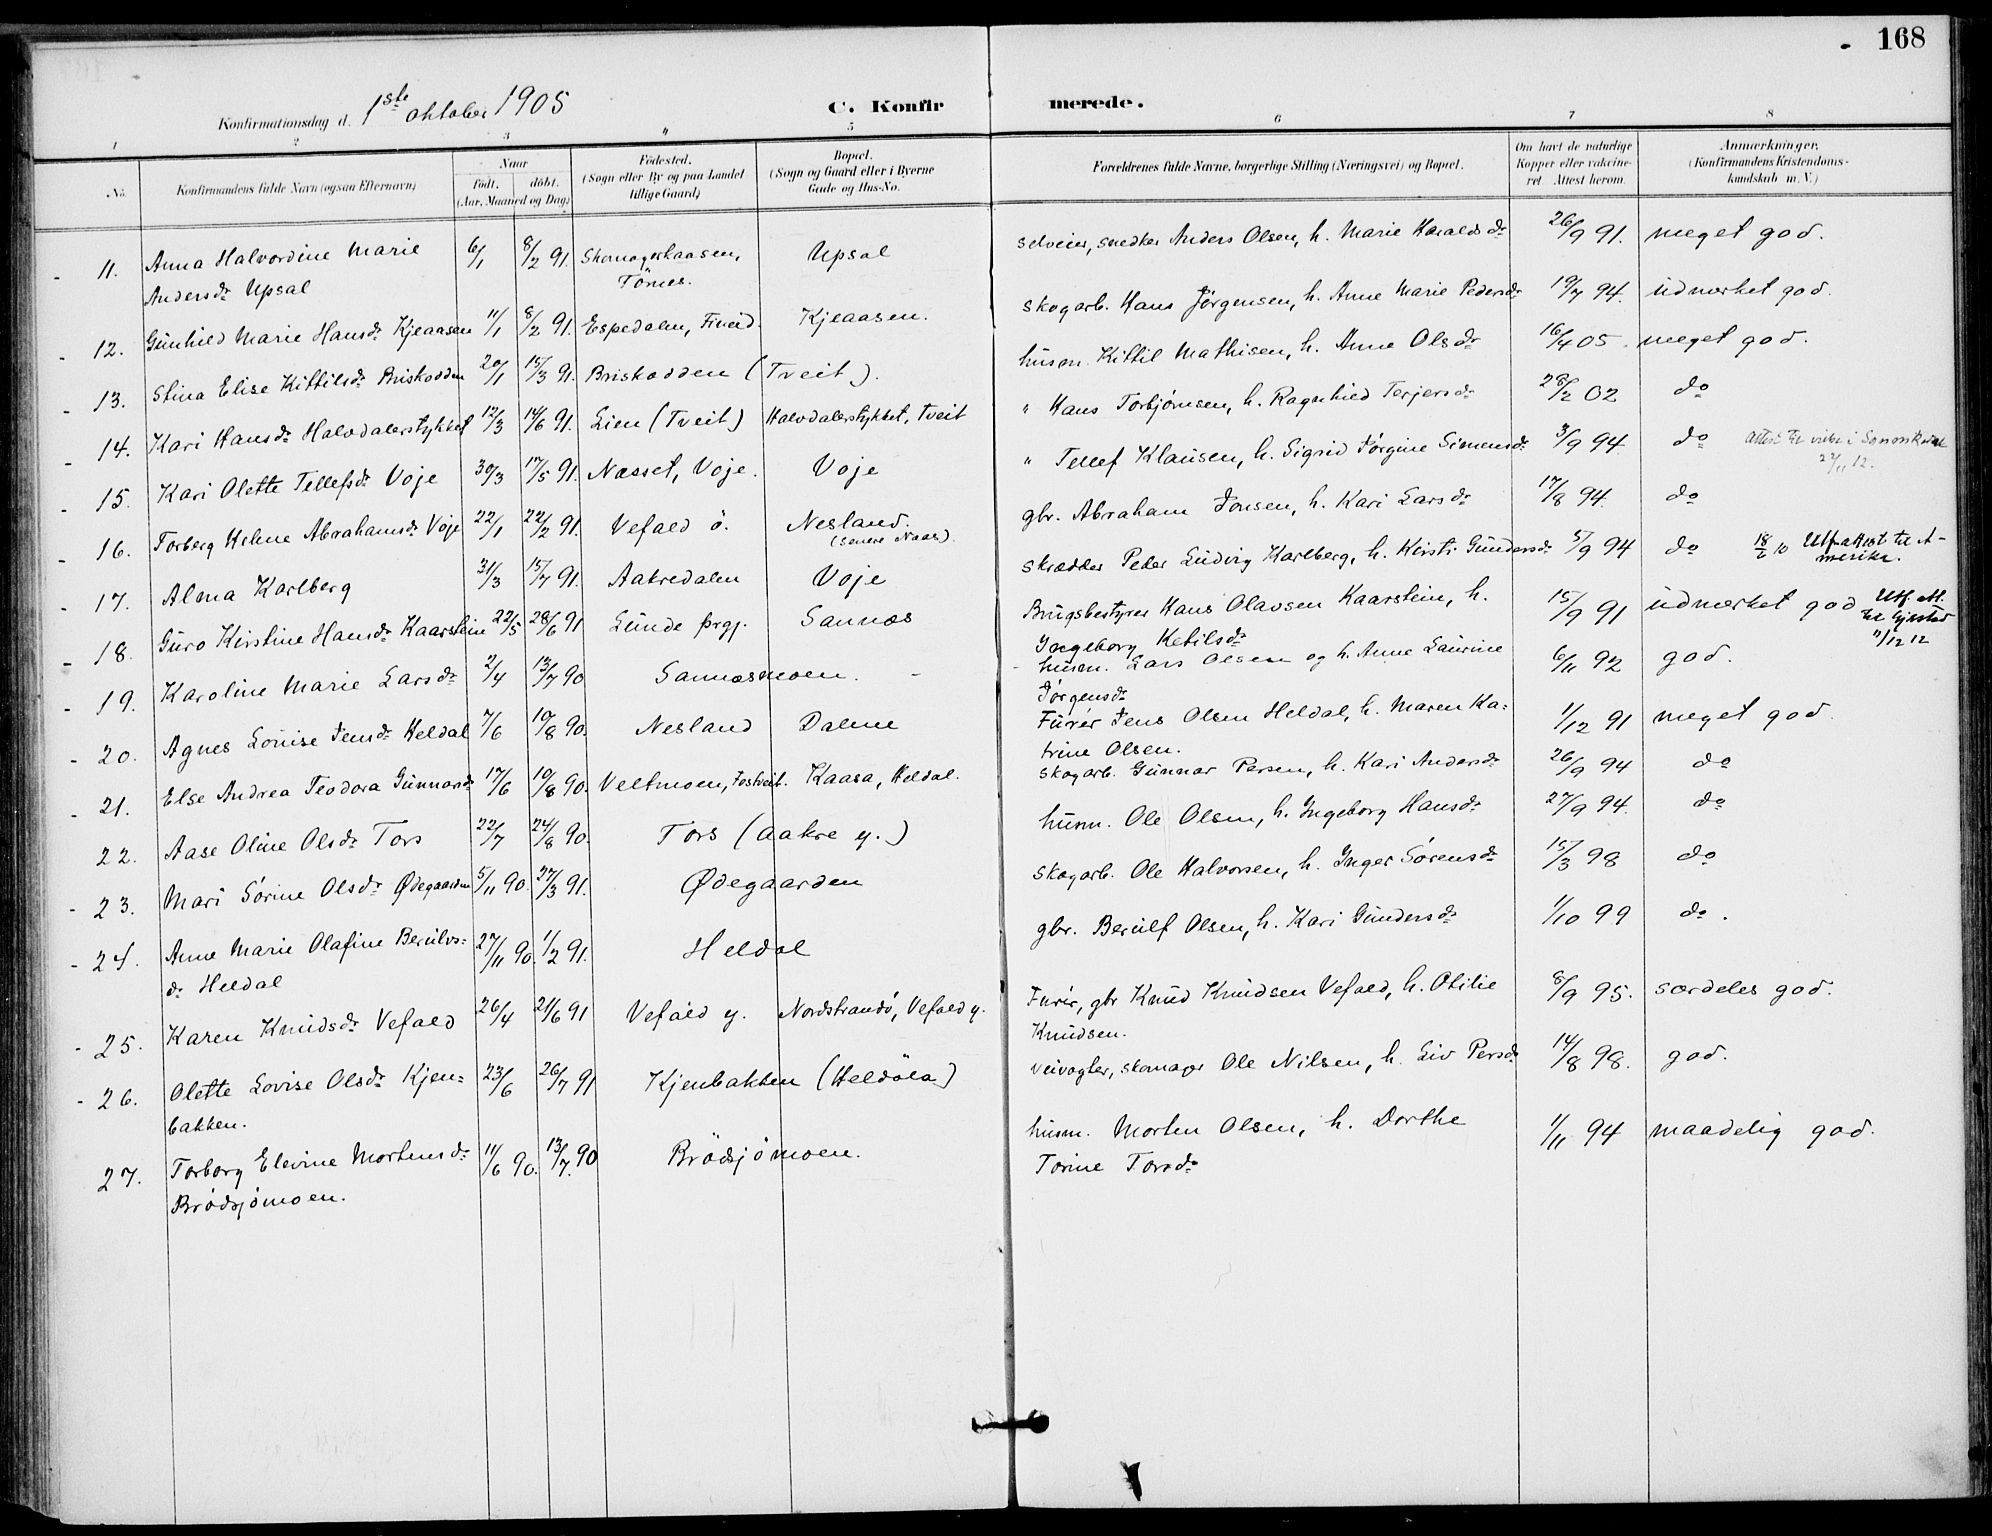 168
Konfirmationsdag d. 1ste oktober 1905
C. Konfirmerede.
1 2 3 4 5 6 7 8
No.
Konfirmandens fulde Navn (ogsaa Efternavn)
Naar
født. döbt.
(Aar, Maaned og Dag)
Födested.
(Sogn eller By og paa Landet
tillige Gaard)
Bopæl.
(Sogn og Gaard eller i Byerne
Gade og Hus-No.
Forældrenes fulde Navne, borgerlige Stilling (Næringsvei) og Bopæl.
Om havt de naturlige
Kopper eller vakcine-
ret Attest herom.
Anmærkninger.
(Konfirmandens Kristendoms-
kundskab m. V.)
11. Anna Halvordine Marie 6/1 8/2 91. Skomagerhaasen, Upsal selveier, snedker Anders Olsen, h. Marie Haraldsdr 26/9 91. meget god.
Andersdr Upsal Törnes.
12. Gunhild Marie Hansdr Kjeaasen 11/1 8/2 91. Espedalen, Fineid. Kjeaasen. skogarb. Hans Jörgensen, h. Anne Marie Pedersdr 19/7 94. udmerket god.
13. Stina Elise Kittilsdr Briskodden 20/1 15/3 91. Briskodden (Tveit). husm. Kittil Mathisen, h. Anne Olsdr 16/4 05. meget god.
14. Kari Hansdr Halvdalerstykket 12/3 14/6 91. Lien (Tveit) Halvdalerstykket, Tveit " Hans Torbjörnsen, h. Ragnhild Terjersdr 28/2 02 do
15. Kari Olette Tellefsdr Voje 30/3 17/5 91. Næsset, Voje. Voje " Tellef Klausen, h. Sigrid Jörgine Simensdr 3/9 94. do
22/11 12.
16. Torberg Helene Abrahamsdr Voje 22/1 22/2 91. Vefald ö. Nesland. gbr. Abraham Jonsen, h. Kari Larsdr 17/8 94. do
(senere Naas).
17. Alma Karlberg 31/3 15/7 91. Aakredalen Voje skrædder Peder Ludvig Karlberg, h. Kirsti Gundersdr 5/9 94 do 18/2 10 Utf. attest til A-
merika.
18. Guro Kirstine Hansdr Kaarstein 22/5 28/6 91 Lunde prgj. Sannæs Brugsbestyrer Hans Olavsen Kaarstein, h. 15/9 91 udmerket god Utf. att.
Ingeborg Ketilsdr til Gjerstad
11/12 12
19. Karoline Marie Larsdr 2/4 13/7 90 Sannæsmoen. husm. Lars Olsen og h. Anne Laurine 6/11 92 god.
Jörgensdr
20. Agnes Louise Jensdr Heldal 7/6 10/8 90. Nesland Dalene Furér Jens Olsen Heldal, h. Maren Ka= 1/12 91 meget god.
trine Olsen.
21. Else Andrea Teodora Gunnarsdr 17/6 10/8 90. Veltmoen, Fostveit. Kaasa, Heldal. skogarb. Gunnar Persen, h. Kari Andersdr 26/9 94 do
22. Aase Oline Olsdr Tors 22/7 24/8 90. Tors (Aakre y.) husm. Ole Olsen, h. Ingeborg Hansdr 27/9 94. do
23. Mari Sörine Olsdr Ødegaarden 5/11 90. 22/3 91. Ødegaarden skogarb. Ole Halvorsen, h. Inger Sörensdr 15/3 98 do
24. Anne Marie Olafine Berulvs= 27/11 90. 1/2 91. Heldal gbr. Berulf Olsen, h. Kari Gundersdr 1/10 99 do.
dr Heldal
25. Karen Knudsdr Vefald 26/4 21/6 91 Vefald y. Nordstrandö, Vefald y. Furér, gbr Knud Knudsen Vefald, h. Otilie 8/9 95. særdeles god.
Knudsen.
26. Olette Lovise Olsdr Kjen= 23/6 26/7 91 Kjenbakken (Heldöla) veivogter, skomager Ole Nilsen, h. Liv Persdr 14/8 98. god.
bakken.
27. Torborg Elevine Mortensdr 11/6 90. 13/7. 90 Brödsjömoen. husm. Morten Olsen, h. Dorthe 1/11 94 maadelig god.
Brödsjömoen. Torine Torsdr